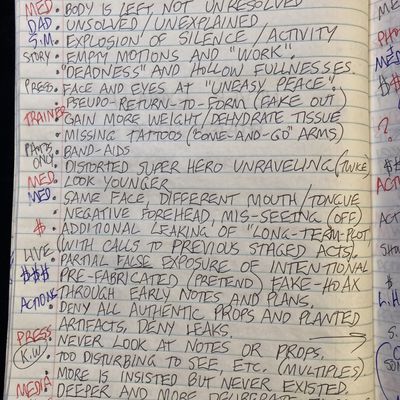 MED. • BODY IS LEFT NOT UNRESOLVED
DAD. • UNSOLVED / UNEXPLAINED
S.M. • EXPLOSION OF SILENCE / ACTIVITY
STORY • EMPTY MOTIONS AND "WORK".
• "DEADNESS" AND HOLLOW FULLNESSES.
PRESS. • FACE AND EYES AT "UNEASY PEACE".
• PSEUDO-RETURN-TO-FORM (FAKE OUT)
TRAINER • GAIN MORE WEIGHT/DEHYDRATE TISSUE
• MISSING TATTOOS ("COME-AND-GO" ARMS)
PARTS ONLY. • BAND-AIDS
• DISTORTED SUPER HERO UNRAVELING (TWICE)
MED. • LOOK YOUNGER
MED. • SAME FACE, DIFFERENT MOUTH/TONGUE
• NEGATIVE FOREHEAD, MIS-SEEING (OFF)
$ • ADDITIONAL LEAKING OF "LONG-TERM-PLOT
(WITH CALLS TO PREVIOUS STAGED ACTS).
LIVE • PARTIAL FALSE EXPOSURE OF INTENTIONAL
$$$ PRE-FABRICATED (PRETEND) FAKE-HOAX
ACTIONS THROUGH EARLY NOTES AND PLANS.
• DENY ALL AUTHENTIC PROPS AND PLANTED
ARTIFACTS, DENY LEAKS.
PRESS • NEVER LOOK AT NOTES OR PROPS.
K.W. • TOO DISTURBING TO SEE, ETC. (MULTIPLES)
• MORE IS INSISTED BUT NEVER EXISTED.
MEDIA • DEEPER AND MORE DELIBERATE
ME
PH
MED
$$
?
$
ACT
ACT
SHO
$
L.H
S.